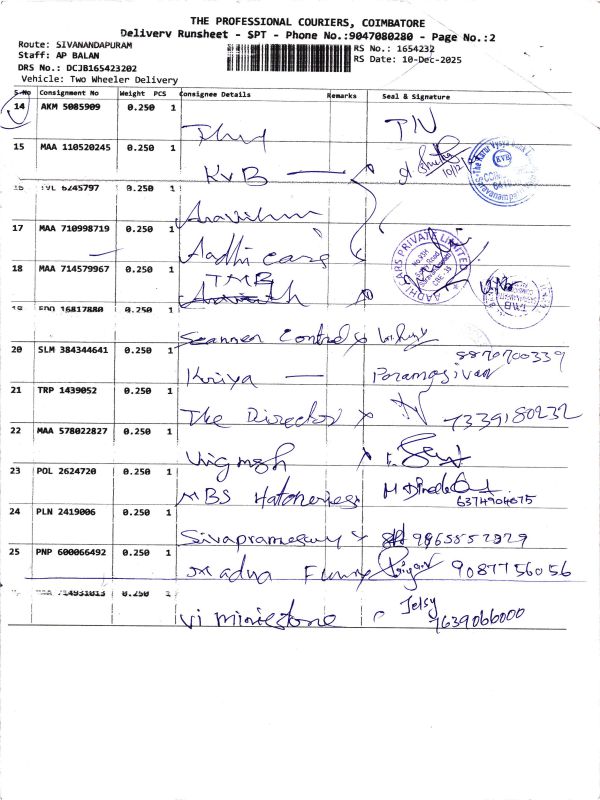 THE PROFESSIONAL COURIERS, COIMBATORE
Delivery Runsheet - SPT - Phone No.:9047080280 - Page No.:2
Route: SIVANANDAPURAM
RS No.: 1654232
Staff: AP BALAN
RS Date: 10-Dec-2025
DRS No.: DCJB165423202
Vehicle: Two Wheeler Delivery
S No Consignment No Weight PCS Consignee Details Remarks Seal & Signature
14 AKM 5085909 0.250 1
15 MAA 110520245 0.250 1 KVB
16 TVL 6245797 0.250 1
17 MAA 710998719 0.250 1 Aadhi cars
AADHI CARS PRIVATE LIMITED
18 MAA 714579967 0.250 1 TMB
19 EDO 16817880 0.250 1 Scanner Control
20 SLM 384344641 0.250 1 Kriya Paramasivan 8870700339
21 TRP 1439052 0.250 1 The Director 7339180232
22 MAA 578022827 0.250 1
23 POL 2624720 0.250 1 MBS 6374904675
24 PLN 2419006 0.250 1 9965552929
25 PNP 600066492 0.250 1 9087756056
MAA 714931013 0.250 1 Vi Minestone Jelsy